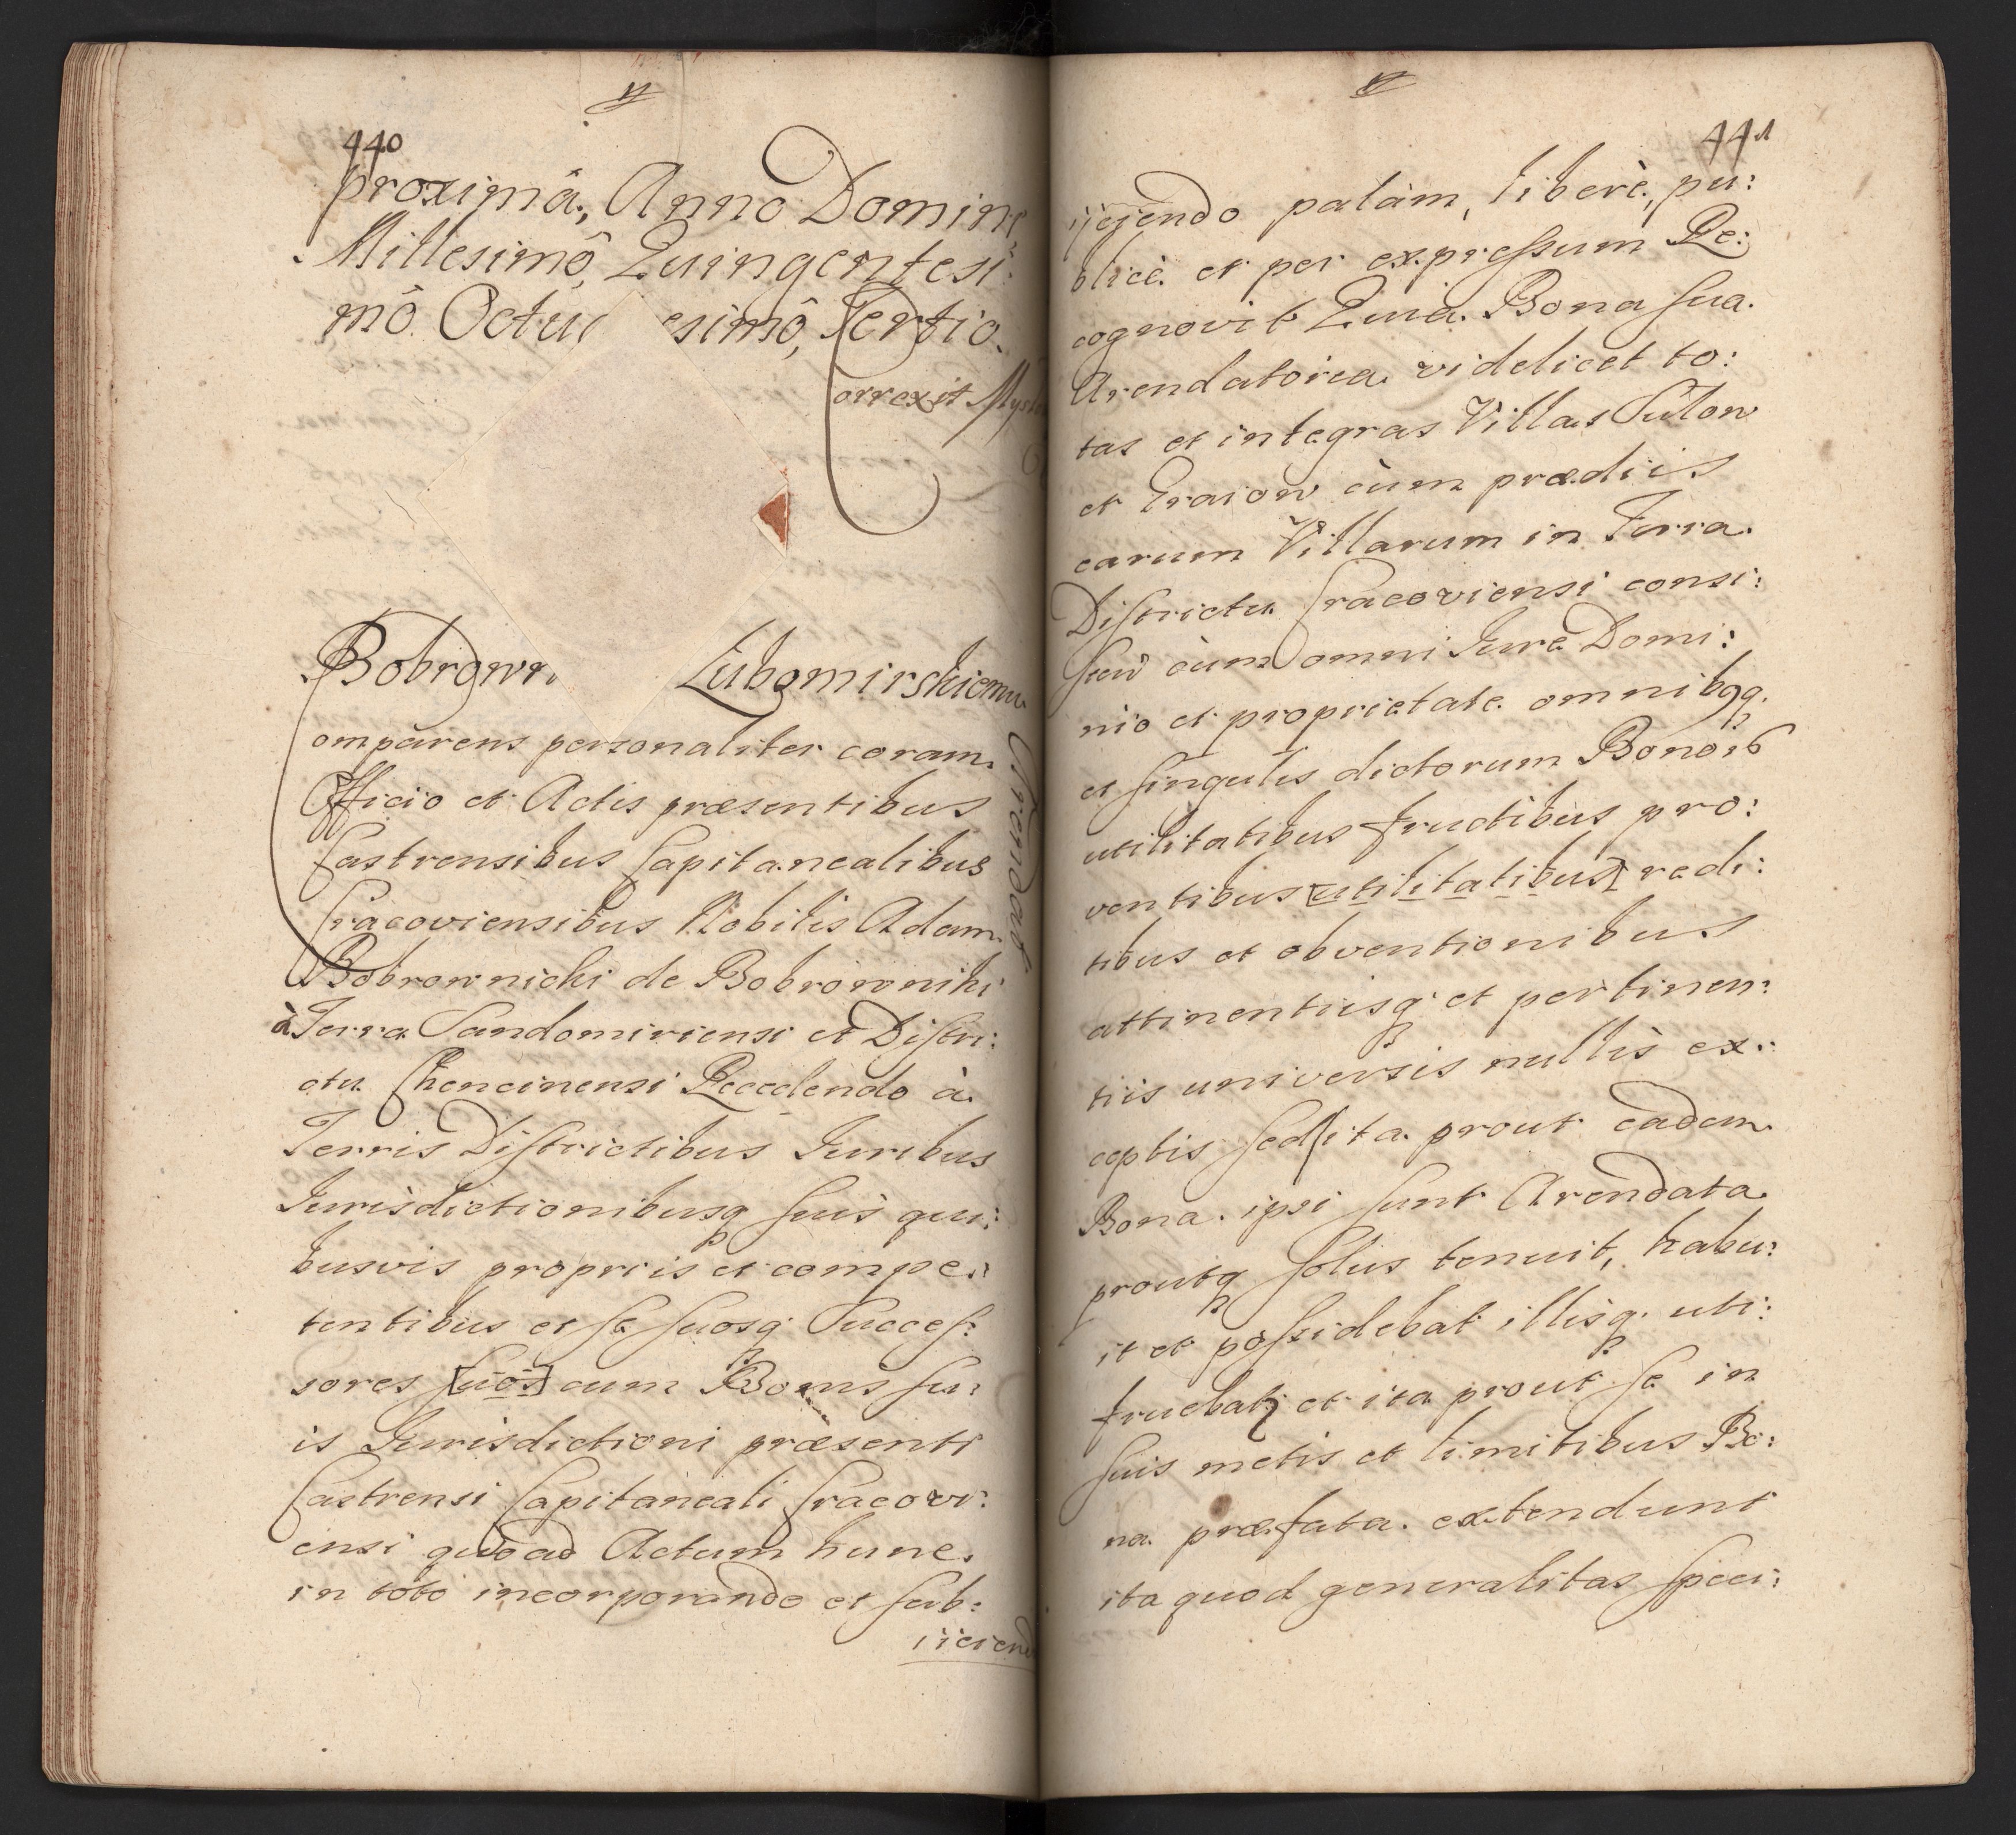 440
proximâ, Anno Domini
Millesimô, Quingentesi:
mô Octu esimô, Tertio.
Correxit
Bobrown Lubomirskiemu
Arendat
Comparens personaliter coram
Officio et Actis præsentibus
Castrensibus Capitanealibus
Cracoviensibus Nobilis Adam
Bobrownicki de Bobrowniki
à Terra Sandomiriensi et Distri:
ctu Chencinensi Recedendo à
Terris Districtibus Iuribus
Iurisdictionibusq suis qui:
busvis proprijs et compe:
tentibus et se suosq Succes:
sores [suos] cum Bonis su:
is Iurisdictioni præsenti
Castrensi Capitaneali Cracovi:
ensi quò ad Actum hunc
in toto incorporando et sub:
iiciend
441
ijciendo palàm, liberè, pu:
blicè et per expressum Re:
cognovit Quia Bona sua
Arendatoria videlicet to:
tas et integras Villas Sulow
et cùm prædiis
earum Villarum in Terra
Districtu Cracoviensi consi:
sten cùm omni Iure Domi:
nio et proprietate omnibqq
et singulis dictorum Bonor
utilitatibus fructibus pro:
ventibus [utilitatibus] redi:
tibus et obventionibus
attinentiisq et pertinen:
tiis universis nullis ex:
ceptis sed ita prout eadem
Bona ipsi sunt Arendata
proutq solus tenuit, habu:
it et possidebat illisq uti:
fruebat et ita prout se in
suis metis et limitibus Bo:
na præfata extendunt
ita quod generalitas speci: